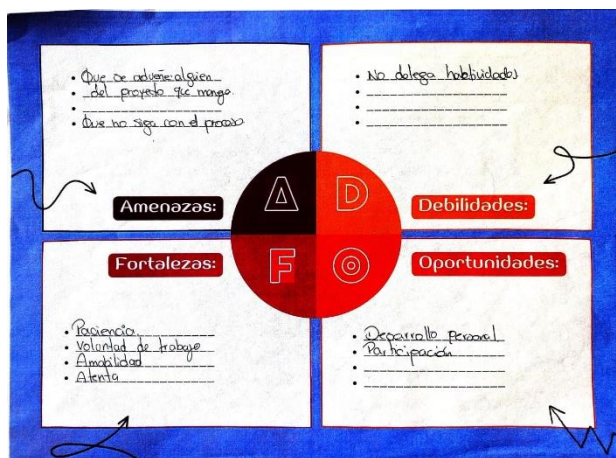 Que se adueñe alguien
del proyecto que tengo
Que no siga con el proceso
Amenazas:
No delega habilividades
Debilidades:
A D
F O
Fortalezas:
Paciencia
Voluntad de trabajo
Amabilidad
Atenta
Oportunidades:
Desarrollo personal
Participación